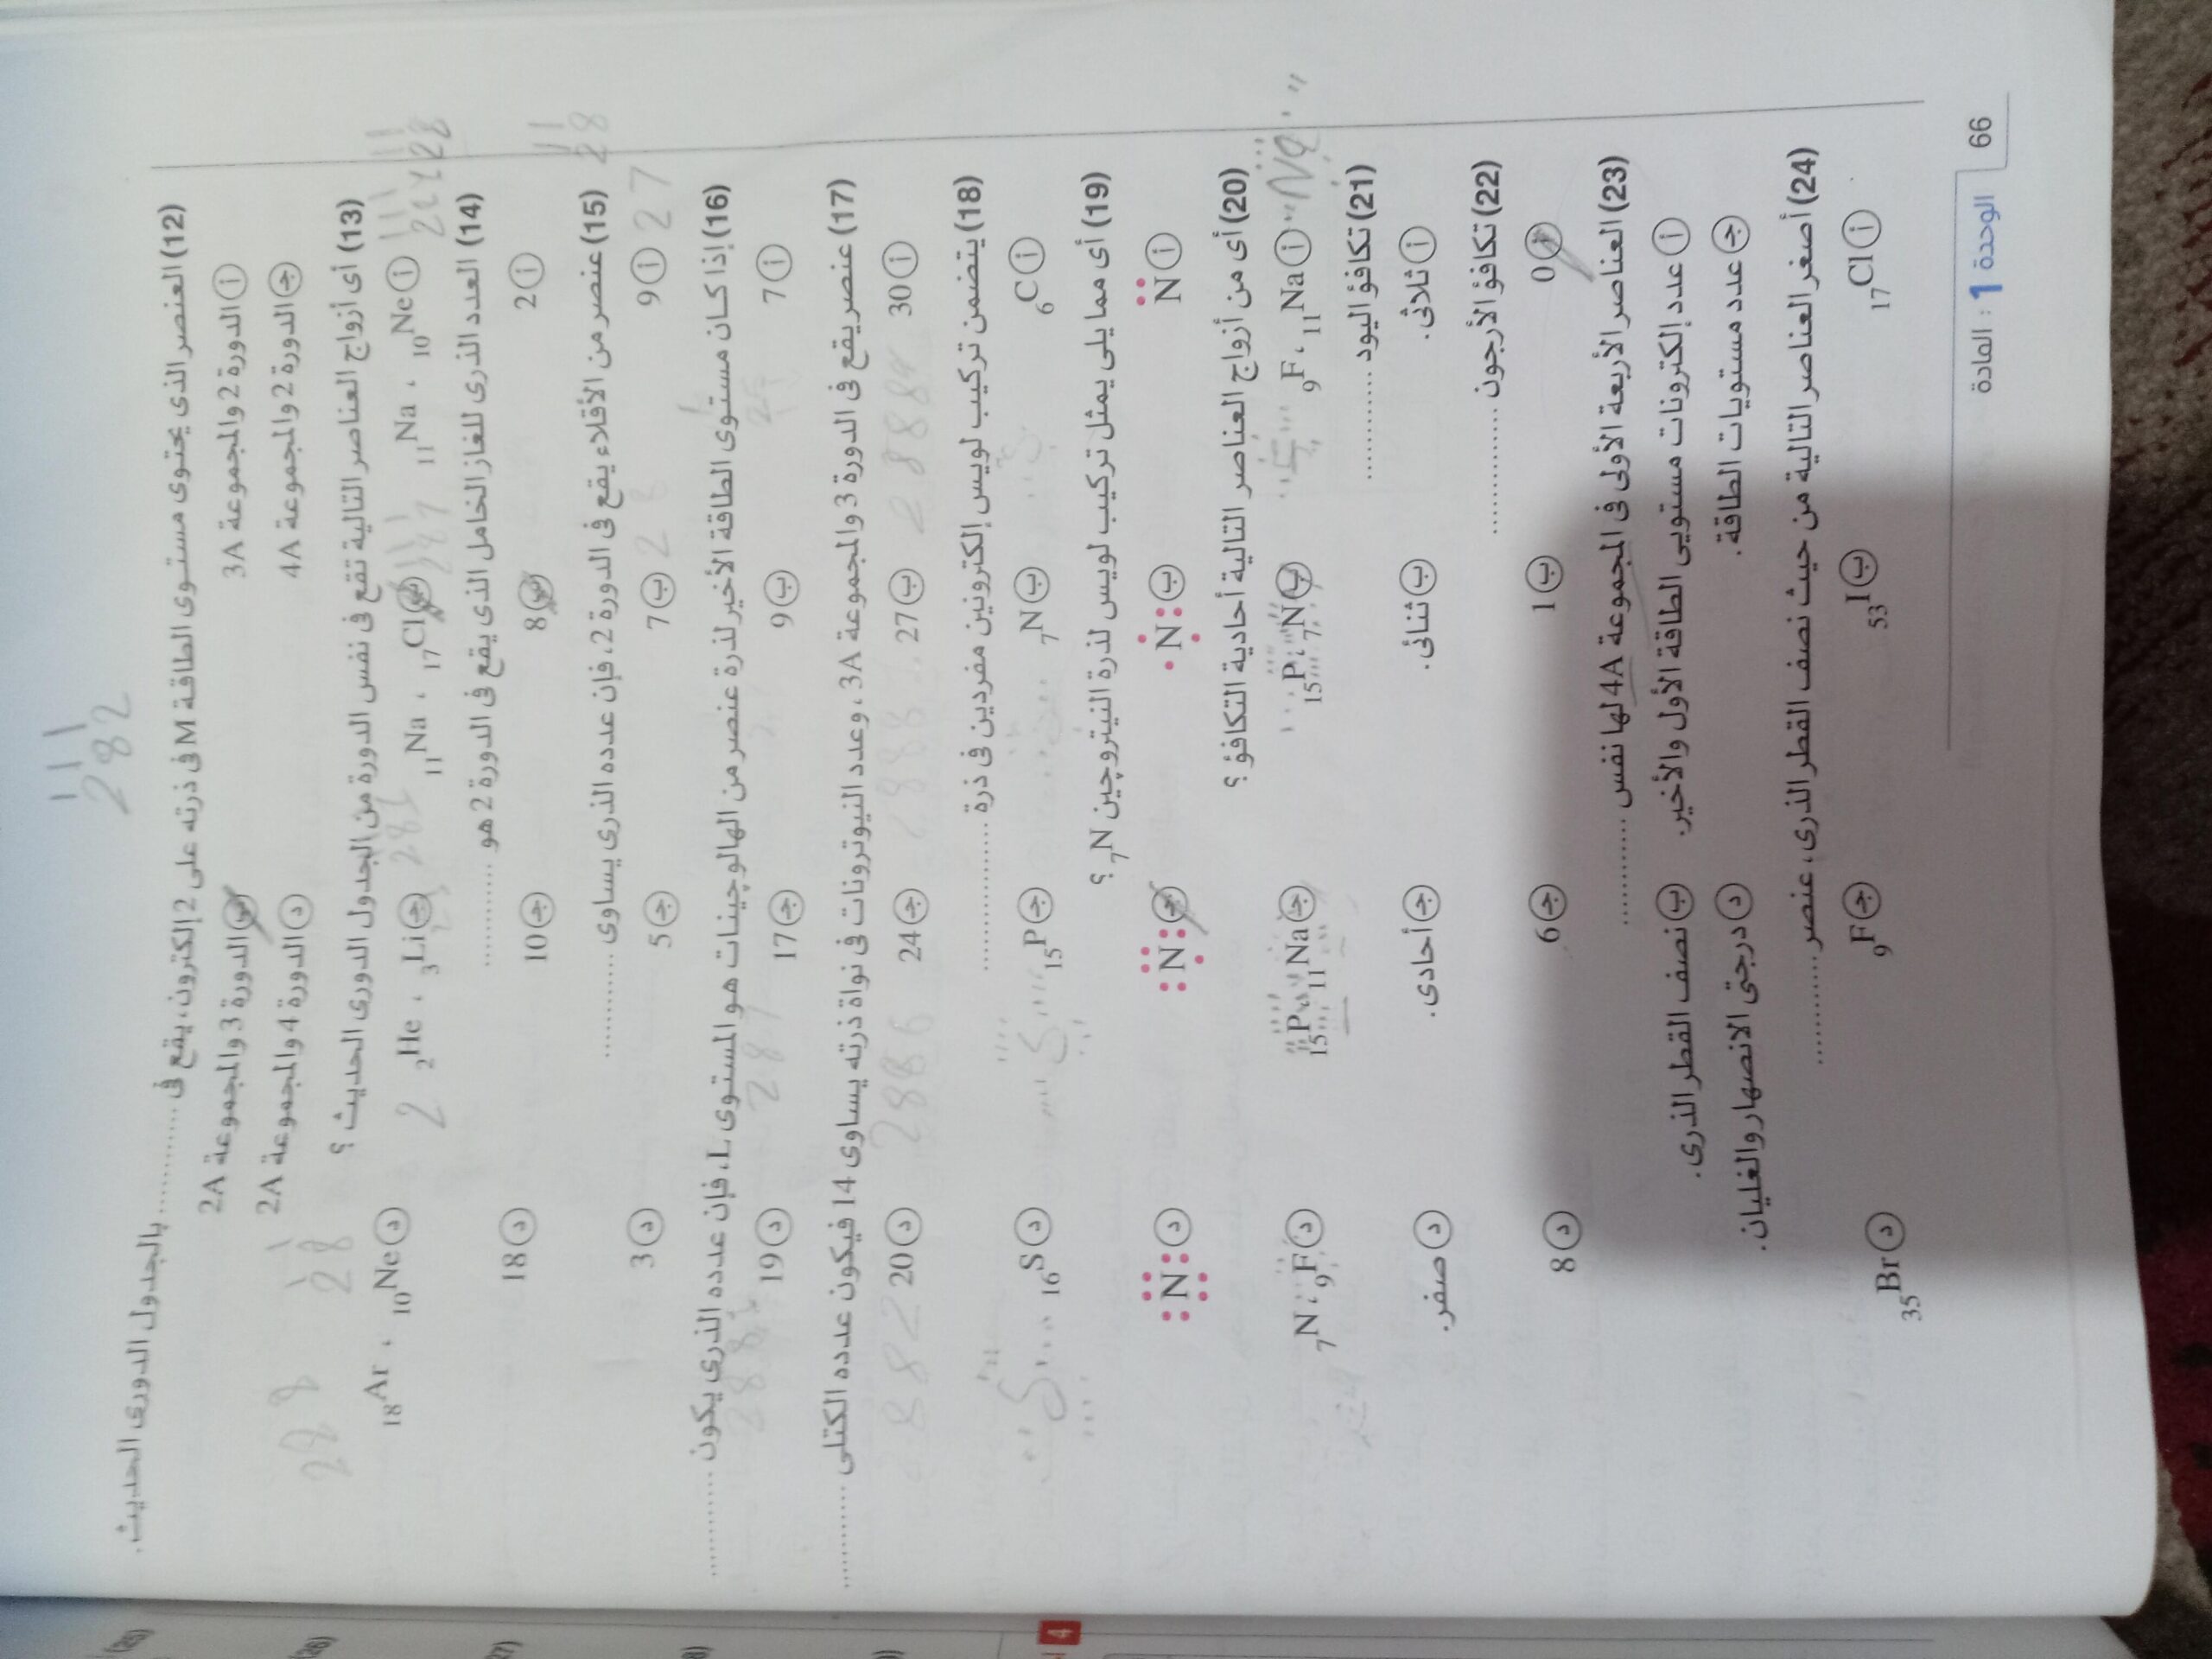 (12) العنصر الذى يحتوى مستوى الطاقة M فى ذرته على 2 إلكترون، يقع فى ............ بالجدول الدورى الحديث.
أ الدورة 2 والمجموعة 3A
ب الدورة 3 والمجموعة 2A
ج الدورة 2 والمجموعة 4A
د الدورة 4 والمجموعة 2A
(13) أى أزواج العناصر التالية تقع فى نفس الدورة من الجدول الدورى الحديث ؟
أ 10Ne ، 11Na
ب 17Cl ، 11Na
ج 3Li ، 2He
د 10Ne ، 18Ar
(14) العدد الذرى للغاز الخامل الذى يقع فى الدورة 2 هو ............
أ 2
ب 8
ج 10
د 18
(15) عنصر من الأقلاء يقع فى الدورة 2، فإن عدده الذرى يساوى ............
أ 9
ب 7
ج 5
د 3
(16) إذا كان مستوى الطاقة الأخير لذرة عنصر من الهالوجينات هو المستوى L، فإن عدده الذرى يكون ............
أ 7
ب 9
ج 17
د 19
(17) عنصر يقع فى الدورة 3 والمجموعة 3A، وعدد النيوترونات فى نواة ذرته يساوى 14 فيكون عدده الكتلى ............
أ 30
ب 27
ج 24
د 20
(18) يتضمن تركيب لويس إلكترونين مفردين فى ذرة ............
أ 6C
ب 7N
ج 15P
د 16S
(19) أى مما يلى يمثل تركيب لويس لذرة النيتروچين 7N ؟
أ N
ب N
ج N
د N
(20) أى من أزواج العناصر التالية أحادية التكافؤ ؟
أ 11Na ، 9F
ب 7N ، 15P
ج 11Na ، 15P
د 9F ، 7N
(21) تكافؤ اليود ............
أ ثلاثى.
ب ثنائى.
ج أحادى.
د صفر.
(22) تكافؤ الأرجون ............
أ 0
ب 1
ج 6
د 8
(23) العناصر الأربعة الأولى فى المجموعة 4A لها نفس ............
أ عدد إلكترونات مستويى الطاقة الأول والأخير.
ب نصف القطر الذرى.
ج عدد مستويات الطاقة.
د درجتى الانصهار والغليان.
(24) أصغر العناصر التالية من حيث نصف القطر الذرى، عنصر ............
أ 17Cl
ب 53I
ج 9F
د 35Br
66 الوحدة 1 : المادة